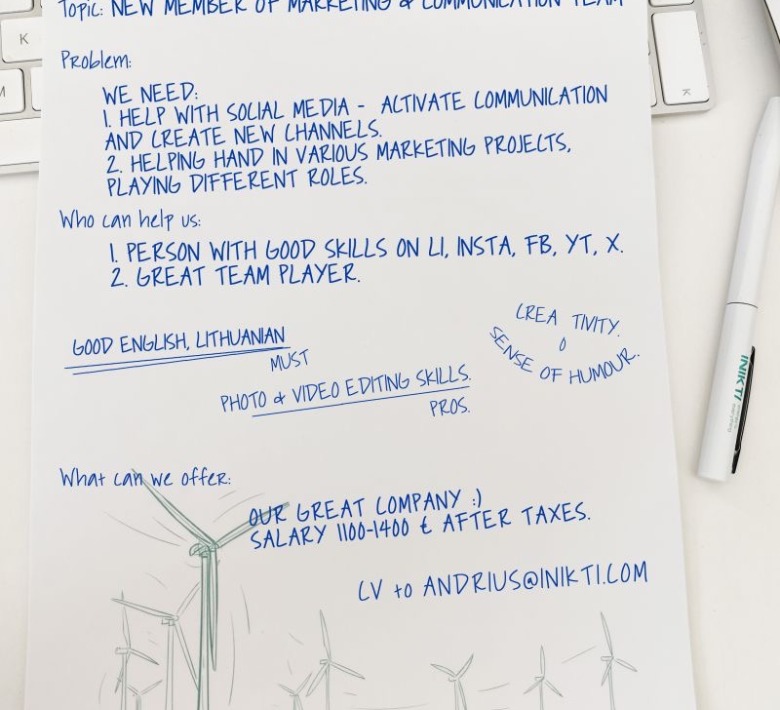 Topic: NEW MEMBER OF MARKETING & COMMUNICATION TEAM
Problem:
WE NEED:
1. HELP WITH SOCIAL MEDIA - ACTIVATE COMMUNICATION
AND CREATE NEW CHANNELS.
2. HELPING HAND IN VARIOUS MARKETING PROJECTS,
PLAYING DIFFERENT ROLES.
Who can help us:
1. PERSON WITH GOOD SKILLS ON LI, INSTA, FB, YT, X.
2. GREAT TEAM PLAYER.
CREATIVITY.
SENSE OF HUMOUR.
GOOD ENGLISH, LITHUANIAN
MUST
PHOTO & VIDEO EDITING SKILLS.
PROS.
What can we offer:
OUR GREAT COMPANY :)
SALARY 1100-1400 € AFTER TAXES.
CV to ANDRIUS@INIKTI.COM
INIKTI
K
M
K